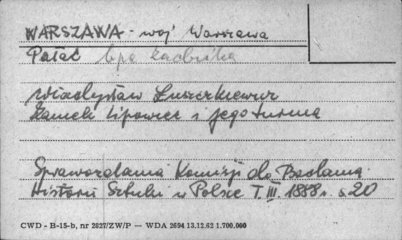 WARSZAWA - woj Warszawa
Pałac bpa
Władysław Łuszczkiewicz
Zamek Lipowiec i jego turma
Sprawozdania Komisji do Badania
Historii Sztuki w Polsce T. III. 1888 r. s. 20
CWD - B-15-b, nr 2627/ZW/P — WDA 2694 13.12.62 1.700.000